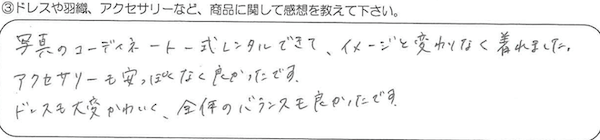 ③ドレスや羽織、アクセサリーなど、商品に関して感想を教えて下さい。
写真のコーディネート一式レンタルできて、イメージと変わりなく着れました。
アクセサリーも安っぽくなく良かったです。
ドレスも大変かわいく、全体のバランスも良かったです。